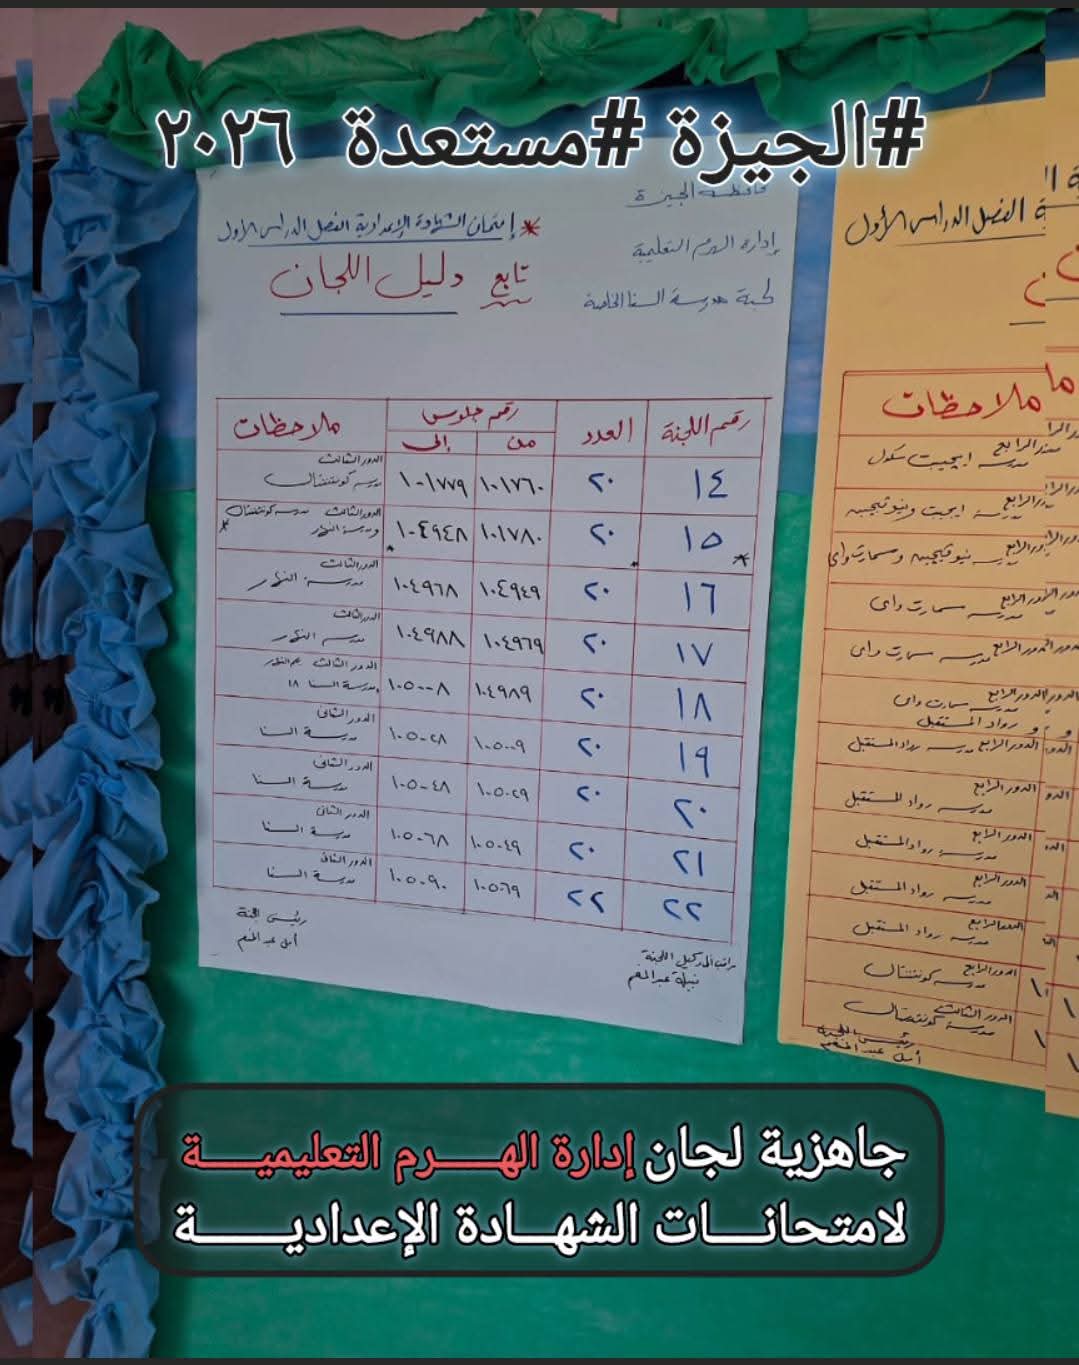 #الجيزة #مستعدة ٢٠٢٦
محافظة الجيزة
إدارة الهرم التعليمية
لجنة مدرسة السنا الخاصة
* إمتحان الشهادة الإعدادية الفصل الدراسى الأول
تابع دليل اللجان
رقم اللجنة العدد رقم جلوس ملاحظات
من إلى
١٤ ٢٠ ١٠١٧٦٠ ١٠١٧٧٩ الدور الثالث مدرسة كونتننتال
١٥ * ٢٠ ١٠١٧٨٠ ١٠٤٩٤٨ الدور الثالث مدرسة كونتننتال ومدرسة النهار *
١٦ ٢٠ ١٠٤٩٤٩ ١٠٤٩٦٨ الدور الثالث مدرسة النهار
١٧ ٢٠ ١٠٤٩٦٩ ١٠٤٩٨٨ الدور الثالث مدرسة النهار
١٨ ٢٠ ١٠٤٩٨٩ ١٠٥٠٠٨ الدور الثالث النهار ومدرسة السنا ١٨
١٩ ٢٠ ١٠٥٠٠٩ ١٠٥٠٢٨ الدور الثانى مدرسة السنا
٢٠ ٢٠ ١٠٥٠٢٩ ١٠٥٠٤٨ الدور الثانى مدرسة السنا
٢١ ٢٠ ١٠٥٠٤٩ ١٠٥٠٦٨ الدور الثانى مدرسة السنا
٢٢ ٢٢ ١٠٥٠٦٩ ١٠٥٠٩٠ الدور الثانى مدرسة السنا
رئيس اللجنة
أمل عبد المنعم
نبيلة عبد المنعم
الفصل الدراسى الأول
ملاحظات
الدور الرابع مدرسة ايجيبت سكول
الدور الرابع مدرسة ايجيبت ونيو فيجين
الدور الرابع مدرسة نيو فيجين وسمارت واى
الدور الرابع مدرسة سمارت واى
الدور الرابع مدرسة سمارت واى
الدور الرابع مدرسة سمارت واى و رواد المستقبل
الدور الرابع مدرسة رواد المستقبل
الدور الرابع مدرسة رواد المستقبل
الدور الرابع مدرسة رواد المستقبل
الدور الرابع مدرسة رواد المستقبل
الدور الرابع مدرسة رواد المستقبل
الدور الرابع مدرسة كونتننتال
الدور الثالث مدرسة كونتننتال
رئيس اللجنة
أمل عبد المنعم
جاهزية لجان إدارة الهرم التعليمية
لامتحانات الشهادة الإعدادية